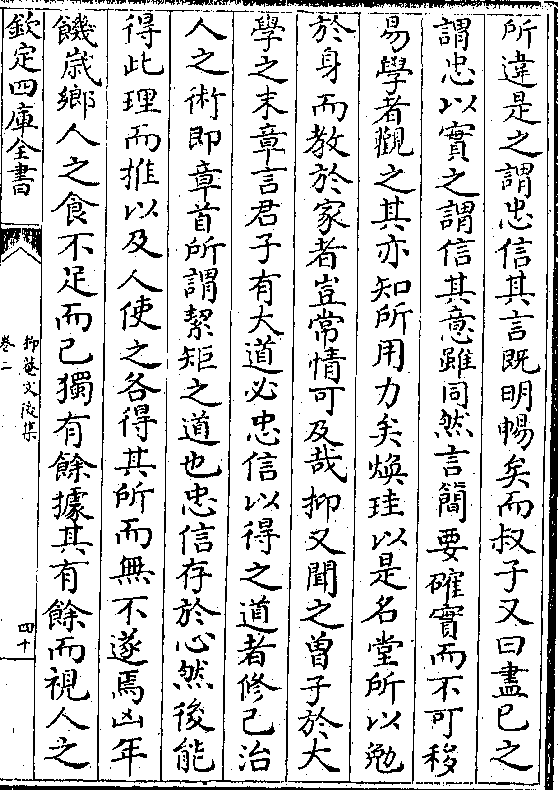 所違是之謂忠信其言既明暢矣而叔子又曰盡已之
謂忠以實之謂信其意雖同然言簡要確實而不可移
易學者觀之其亦知所用力矣煥珪以是名堂所以勉
於身而教於家者豈常情可及哉抑又聞之曽子於大
學之末章言君子有大道必忠信以得之道者修己治
人之術即章首所謂絜矩之道也忠信存於心然後能
得此理而推以及人使之各得其所而無不遂焉凶年
饑嵗鄉人之食不足而已獨有餘據其有餘而視人之
欽定四庫全書
抑菴文後集
卷二
四十